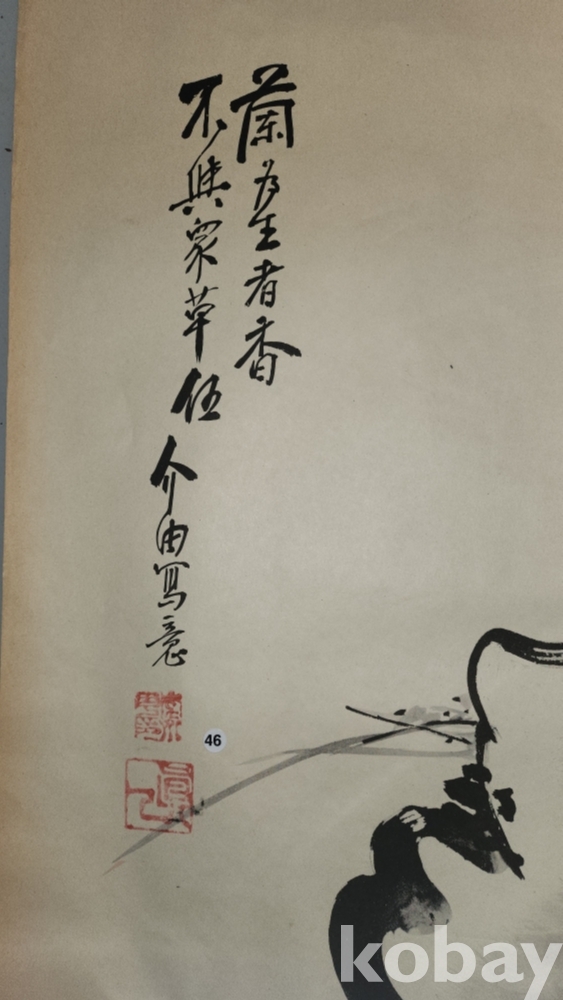 蘭為王者香
不與衆草伍
介由寫意
46
kobay